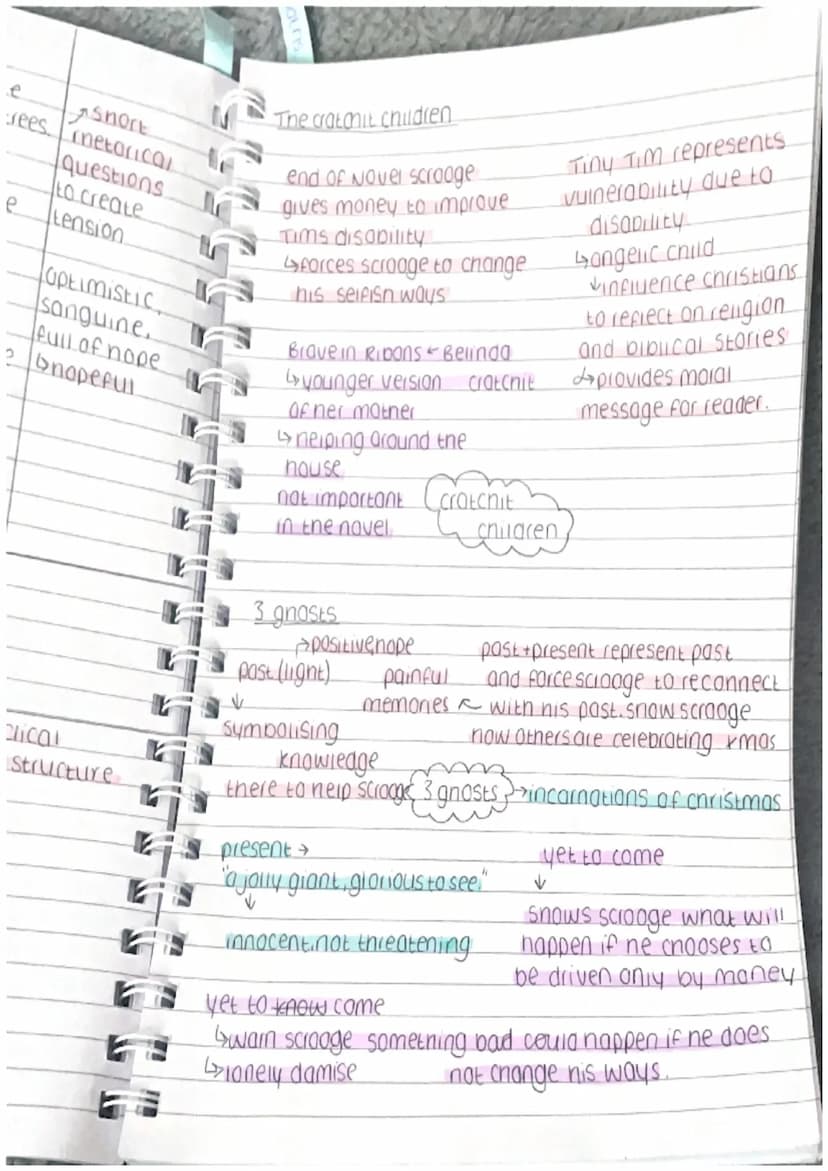 e
rees.
↗short
rhetorical
questions
to create
tension
e
optimistic,
sanguine,
full of hope
↳hopeful
clical
structure
The cratchit children
end of Novel scrooge
gives money to improve
Tims disability
↳forces scrooge to change
his selfish ways
Tiny Tim represents
vulnerability due to
disability
↳angelic child
↓influence christians
to reflect on religion
and biblical stories
↳provides moral
message for reader.
Brave in Ribons ← Belinda
↳younger version cratchit
of her mother
↳ helping around the
house
not important
in the novel
cratchit
children
3 ghosts
→positive,hope
past (light)
↓
symbolising
knowledge
there to help scrooge
painful
memories ↖
past+present represent past
and force scrooge to reconnect
with his past. show scrooge
how others are celebrating xmas
3 ghosts →incarnations of christmas
present →
"a jolly giant, glorious to see."
↓
innocent, not threatening
yet to come
↓
shows scrooge what will
happen if he chooses to
be driven only by money
yet to know come
↳warn scrooge something bad could happen if he does
not change his ways.
↳lonely damise